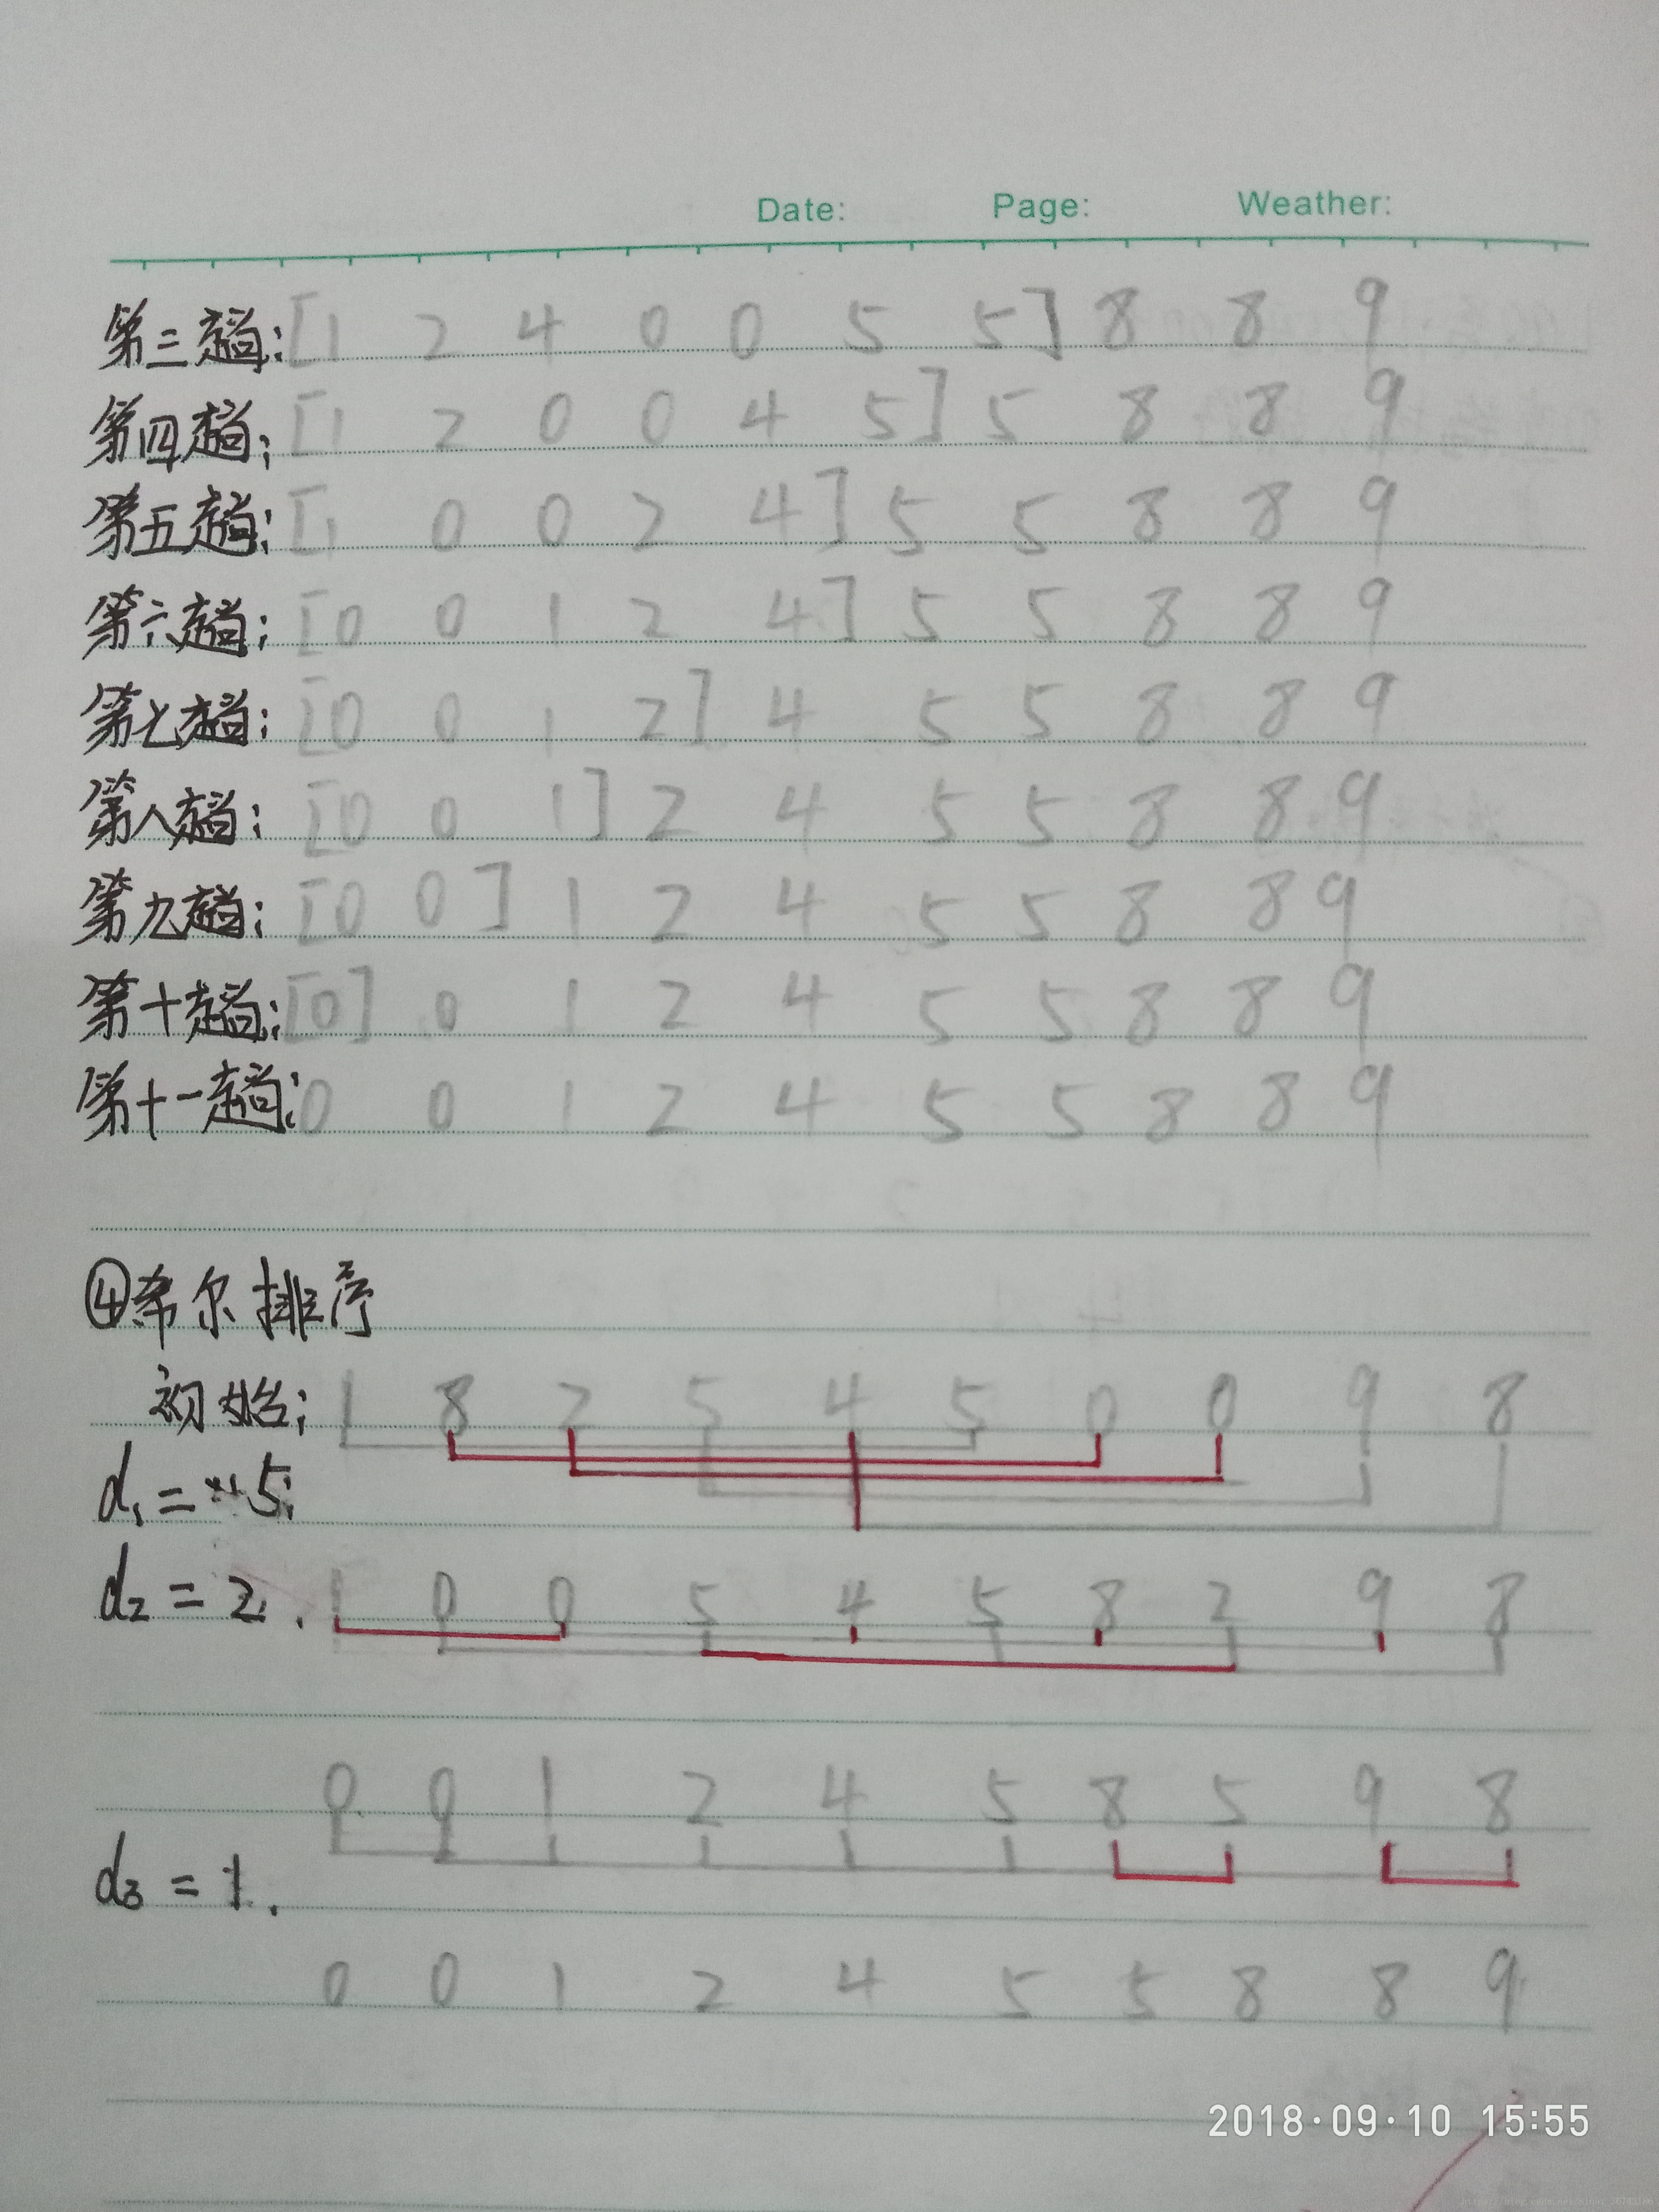 Date: Page: Weather:
第三趟:[1 2 4 0 0 5 5] 8 8 9
第四趟:[1 2 0 0 4 5] 5 8 8 9
第五趟:[1 0 0 2 4] 5 5 8 8 9
第六趟:[0 0 1 2 4] 5 5 8 8 9
第七趟:[0 0 1 2] 4 5 5 8 8 9
第八趟:[0 0 1] 2 4 5 5 8 8 9
第九趟:[0 0] 1 2 4 5 5 8 8 9
第十趟:[0] 0 1 2 4 5 5 8 8 9
第十一趟:0 0 1 2 4 5 5 8 8 9
④希尔排序
初始: 1 8 2 5 4 5 0 0 9 8
d₁ = 5;
d₂ = 2. 1 0 0 5 4 5 8 2 9 8
0 0 1 2 4 5 8 5 9 8
d₃ = 1.
0 0 1 2 4 5 5 8 8 9
2018·09·10 15:55